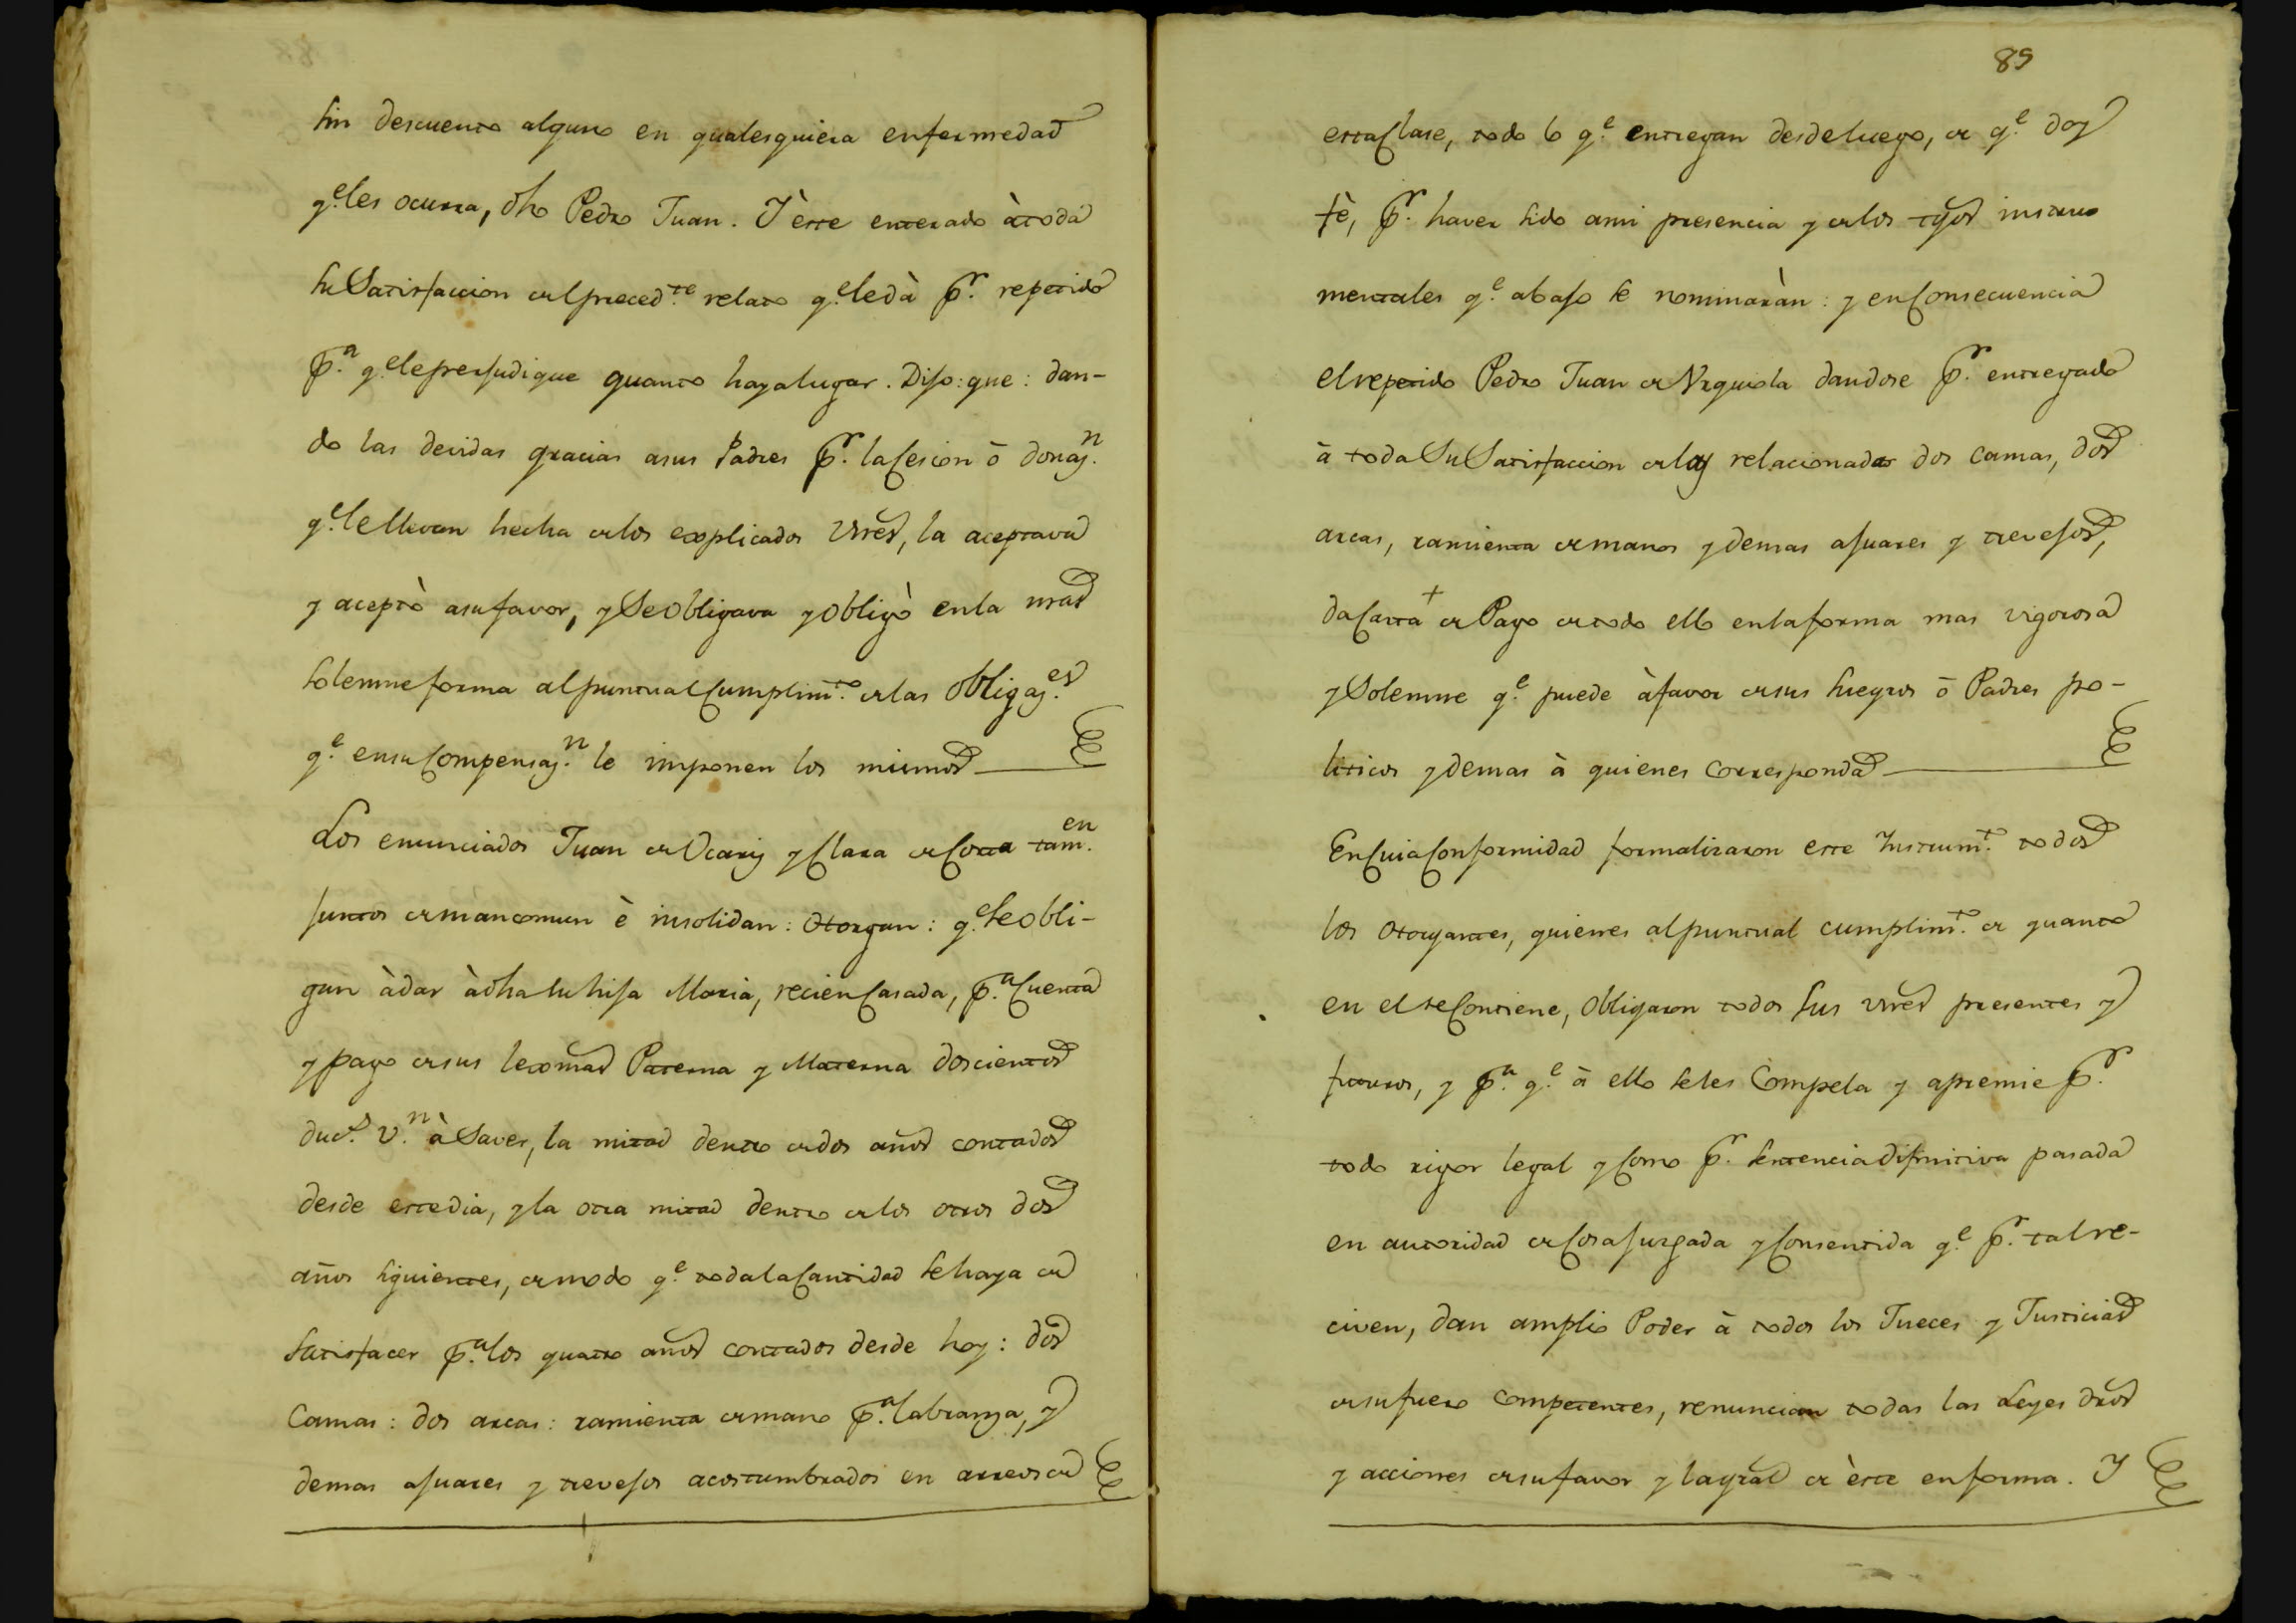 sin descuento alguno en qualesquiera enfermedad
q.e les ocurra, dho Pedro Juan. Y èste enterado à toda
su Satisfaccion del preced.te relato q.e le dà p.r repetido
p.a q.e le perjudique quanto haya lugar. Dijo: que: dan-
do las devidas gracias a sus Padres p.r la Cesion ō donaz.n
q.e le llevan hecha de los explicados vnes, la aceptava
y aceptò a su favor, y Se obligava y obligò en la mas
solemne forma al puntual Cumplim.to de las Obligaz.es
q.e en su Compensaz.n le imponen los mismos
Los enunciados Juan de Ucariz y Clara de Corta tam.en
juntos de mancomun è insolidan: Otorgan: q.e se obli-
gan à dar à dha su hija Maria, recien Casada, p.a Cuenta
y pago de sus lexmas Paterna y Materna doscientos
duc.s v.n à Saver, la mitad dentro de dos años contados
desde este dia, y la otra mitad dentro de los otros dos
años siguientes, de modo q.e toda la Cantidad se haya de
Satisfacer p.a los quatro años contados desde hoy: dos
Camas: dos arcas: ramienta de mano p.a labranza, y
demas ajuares y trevejos acostumbrados en arreos de
89
esta Clase, todo lo q.e entregan desde luego, de q.e doy
fè, p.r haver sido a mi presencia y de los tgos instru
mentales q.e abajo se nominaràn: y en Consecuencia
el repetido Pedro Juan de Vrquiola dandose p.r entregado
à toda Su Satisfaccion de las relacionadas dos camas, dos
arcas, ramienta de manos y demas ajuares y trevejos,
da Carta de Pago de todo ello en la forma mas vigorosa
y Solemne q.e puede à favor de sus suegros ō Padres po-
liticos y demas à quienes corresponda
En Cuia Conformidad formalizaron este Instrum.to todos
los otorgantes, quienes al puntual cumplim.to de quanto
en el se Contiene, Obligaron todos sus vnes presentes y
futuros, y p.a q.e à ello se les Compela y apremie p.r
todo rigor legal y Como p.r sentencia difinitiva pasada
en autoridad de Cosa juzgada y Consentida q.e p.r tal re-
civen, dan amplio Poder à todos los Jueces y Justicias
de su fuero competentes, renuncian todas las Leyes dros
y acciones de su favor y la gral de èste en forma. Y